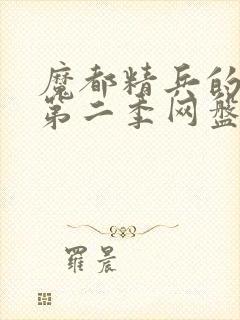 魔都精兵的
第二季网盘
羅晨